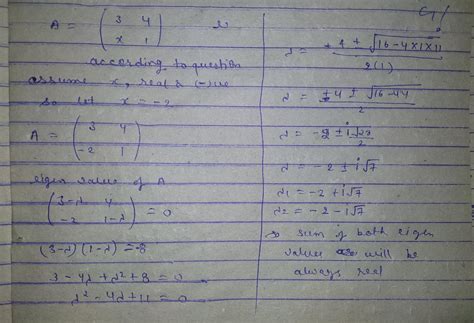 A = ( 3 4
x 1 )
according to question
assume x, real & (-)ive
so let x = -2
A = ( 3 4
-2 1 )
eigen value of A
( 3-λ 4
-2 1-λ ) = 0
(3-λ) (1-λ) = -8
3 - 4λ + λ² + 8 = 0
λ² - 4λ + 11 = 0
λ = + 4 ± √16 - 4×1×11
2(1)
λ = ± 4 ± √16 - 44
2
λ = -2 ± i√28
2
λ = -2 ± i√7
λ1 = -2 + i√7
λ2 = -2 - i√7
so sum of both eigen
values will be
always real